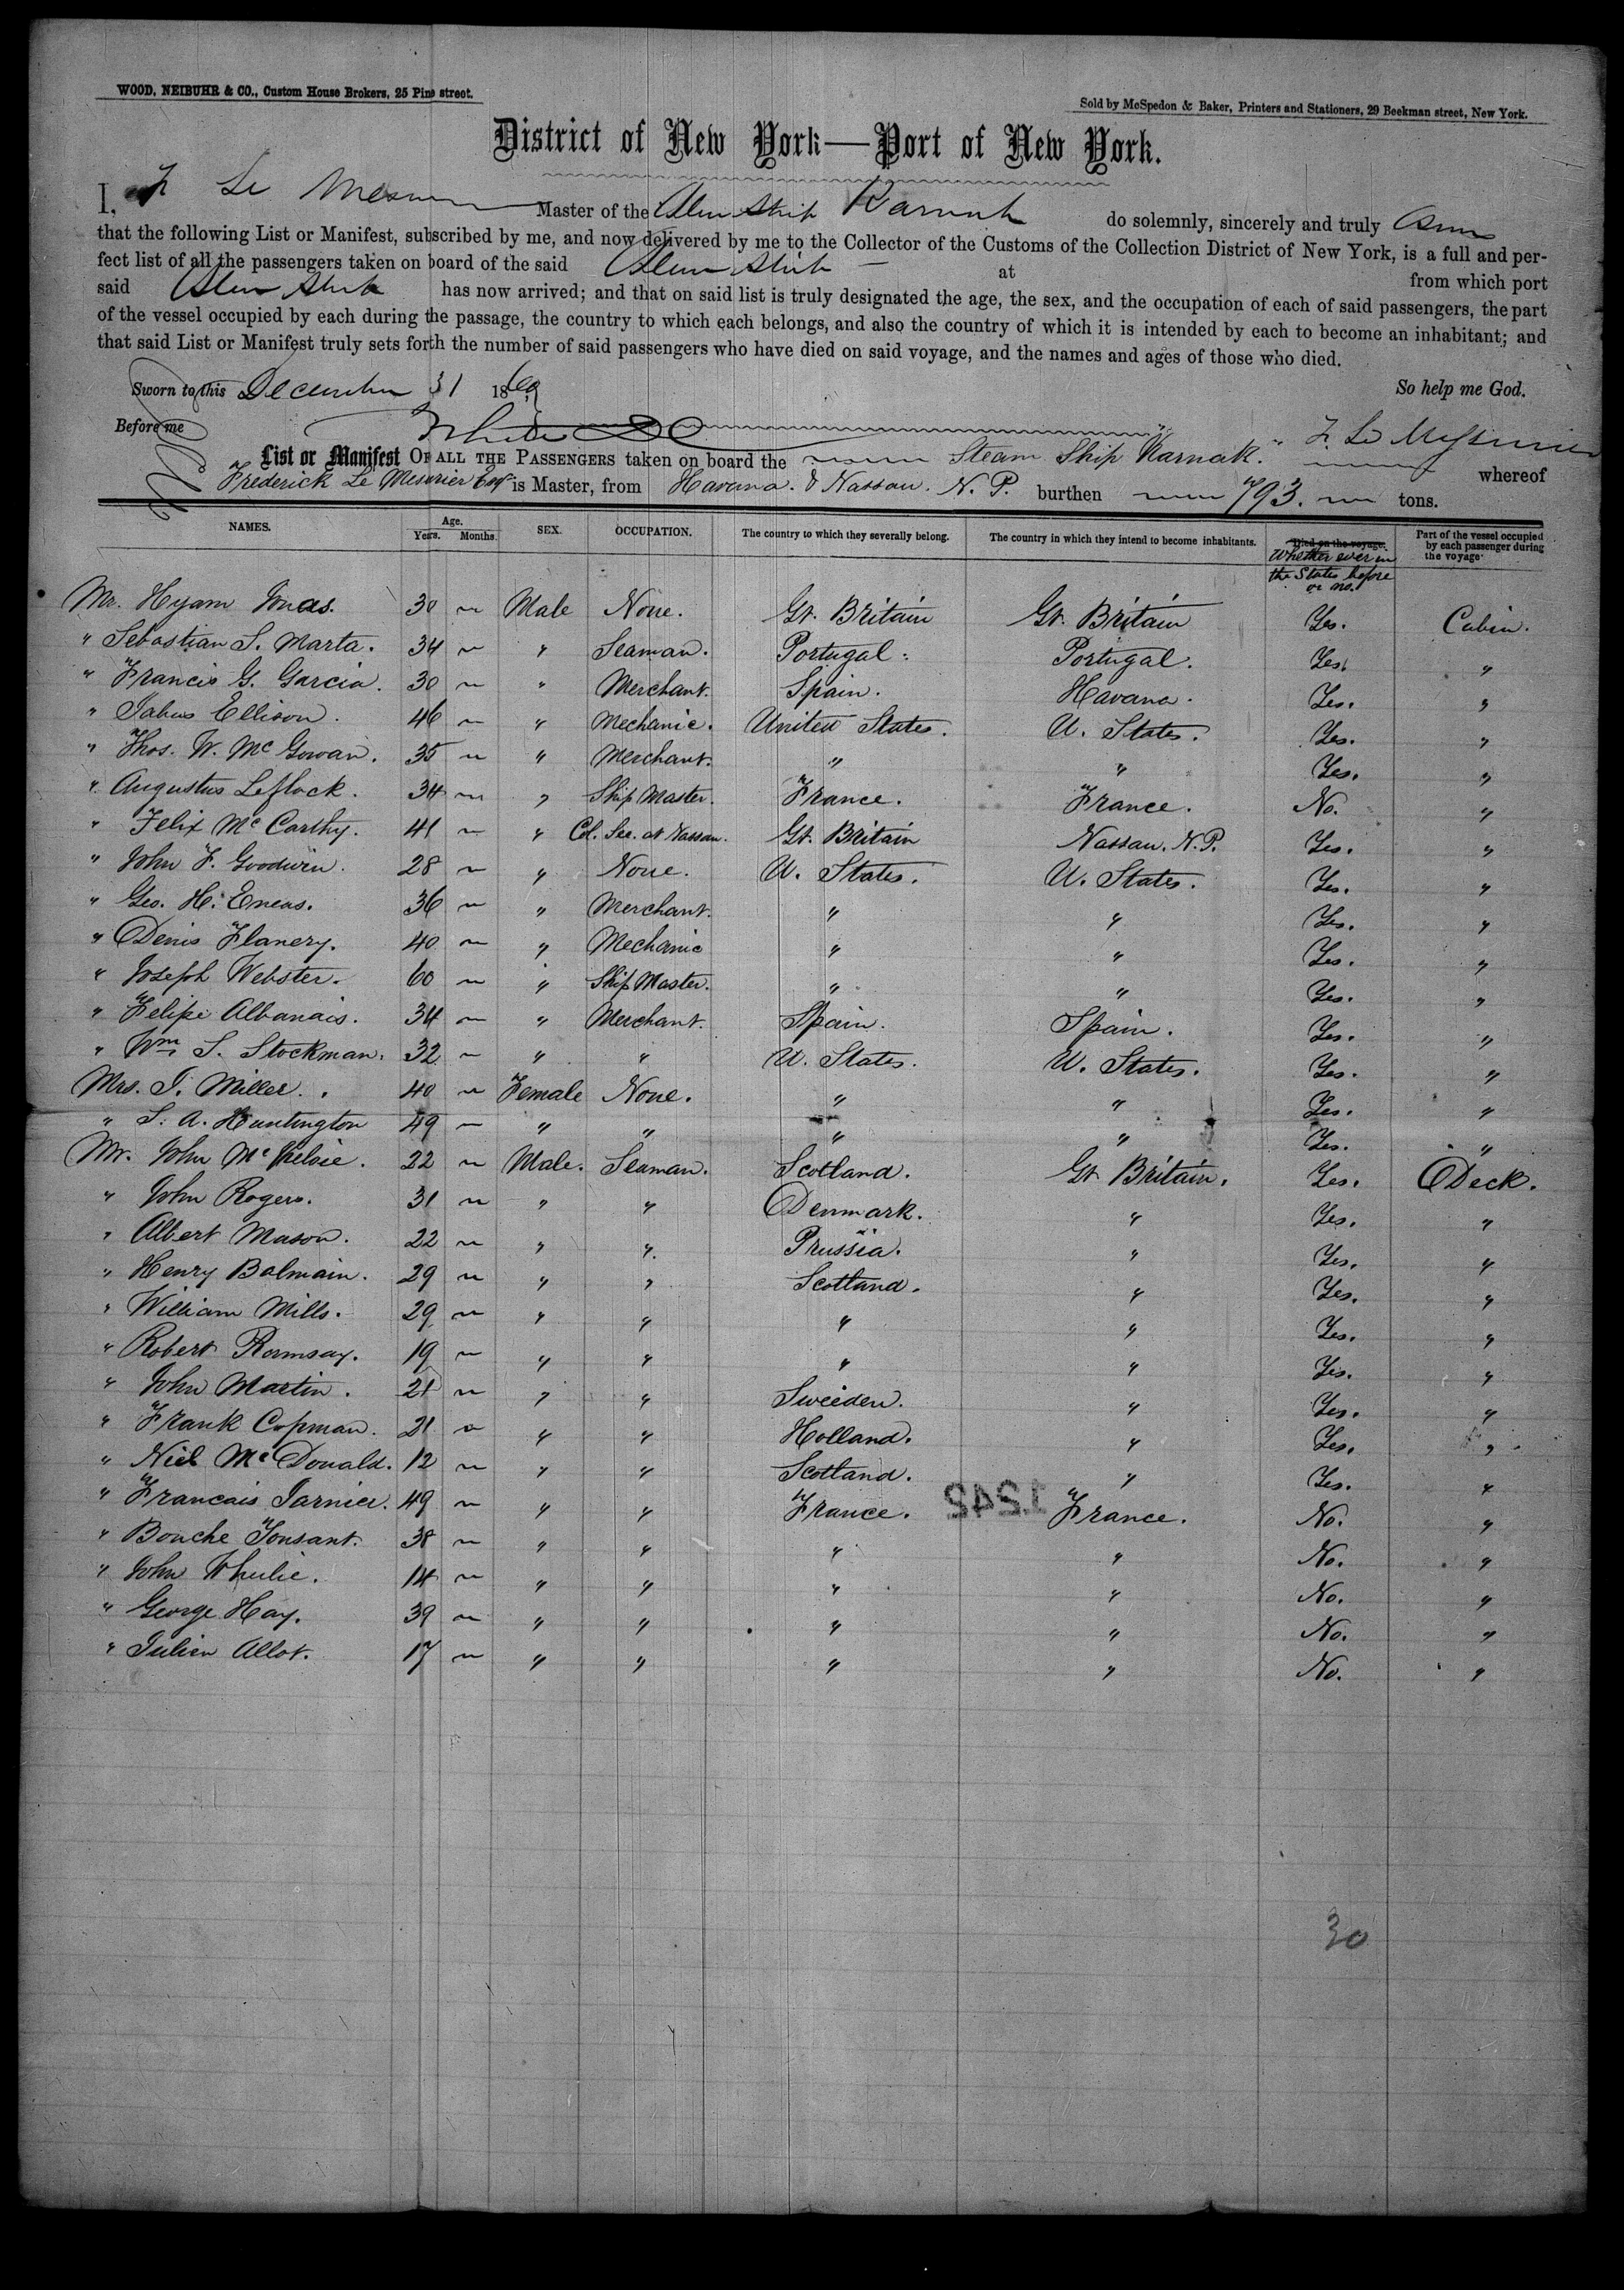 WOOD, NEIBUHR & CO., Custom House Brokers, 25 Pine street.
Sold by McSpedon & Baker, Printers and Stationers, 29 Beekman street, New York.
District of New York—Port of New York.
I, F Le Mesurier Master of the Steam Ship Karnak do solemnly, sincerely and truly
that the following List or Manifest, subscribed by me, and now delivered by me to the Collector of the Customs of the Collection District of New York, is a full and per-
fect list of all the passengers taken on board of the said Steam Ship at from which port
said Steam Ship has now arrived; and that on said list is truly designated the age, the sex, and the occupation of each of said passengers, the part
of the vessel occupied by each during the passage, the country to which each belongs, and also the country of which it is intended by each to become an inhabitant; and
that said List or Manifest truly sets forth the number of said passengers who have died on said voyage, and the names and ages of those who died.
Sworn to this December 31 18 So help me God.
Before me F. Le Mesurier
List or Manifest OF ALL THE PASSENGERS taken on board the Steam Ship "Karnak." whereof
Frederick Le Mesurier Esqr is Master, from Havana & Nassau. N. P. burthen 793. tons.
NAMES. Age. Years. Months. SEX. OCCUPATION. The country to which they severally belong. The country in which they intend to become inhabitants. Died on the voyage. Whether ever in the States before or no. Part of the vessel occupied by each passenger during the voyage
Mr. Hyam Jonas. 30 Male None. Gt. Britain Gt. Britain Yes. Cabin.
" Sebastian S. Marta. 34 " Seaman. Portugal. Portugal. Yes. "
" Francis G. Garcia. 30 " Merchant. Spain. Havana. Yes. "
" Jabus Ellison. 46 " Mechanic. United States. U. States. Yes. "
" Thos. W. McGowan. 35 " Merchant. " " Yes. "
" Augustus Leflock. 34 " Ship Master. France. France. No. "
" Felix McCarthy. 41 " Col. Sec. at Nassau. Gt. Britain Nassau. N.P. Yes. "
" John F. Goodwin. 28 " None. U. States. U. States. Yes. "
" Geo. H. Eneas. 36 " Merchant. " " Yes. "
" Denis Flanery. 40 " Mechanic " " Yes. "
" Joseph Webster. 60 " Ship Master. " " Yes. "
" Felipe Albanais. 34 " Merchant. Spain. Spain. Yes. "
" Wm. S. Stockman. 32 " " U. States. U. States. Yes. "
Mrs. J. Miller. 40 Female None. " " Yes. "
" S. A. Huntington 49 " " " " Yes. "
Mr. John McKelvie. 22 Male. Seaman. Scotland. Gt. Britain. Yes. Deck.
" John Rogers. 31 " " Denmark. " Yes. "
" Albert Mason. 22 " " Prussia. " Yes. "
" Henry Balmain. 29 " " Scotland. " Yes. "
" William Mills. 29 " " " " Yes. "
" Robert Ramsay. 19 " " " " Yes. "
" John Martin. 21 " " Sweeden. " Yes. "
" Frank Copman. 21 " " Holland. " Yes. "
" Niel McDonald. 12 " " Scotland. " Yes. "
" Francais Jarnier. 49 " " France. France. No. "
1242
" Bouche Tonsant. 38 " " " " No. "
" John Whulie. 14 " " " " No. "
" George Hay. 39 " " " " No. "
" Julien Allot. 17 " " " " No. "
30